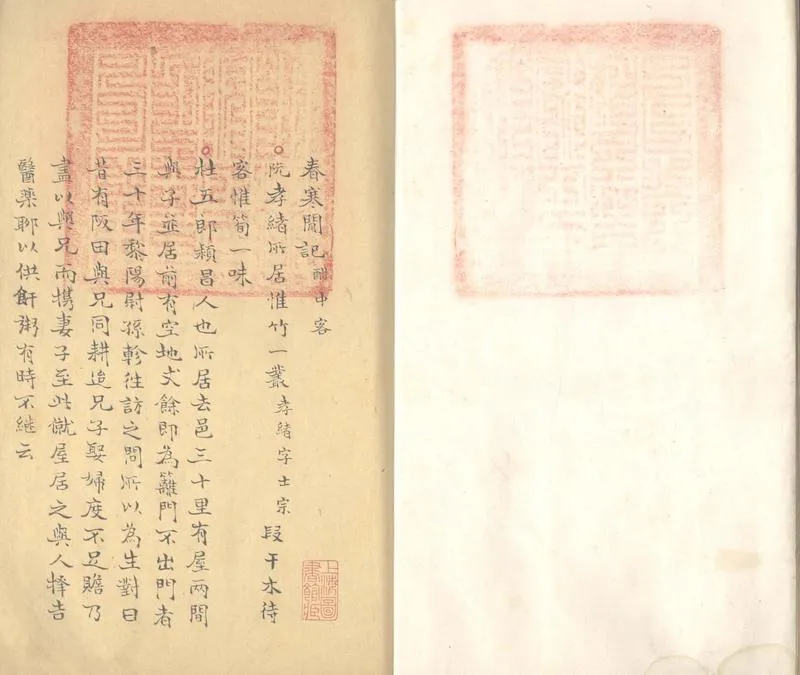 春寒閒記 酣中客
阮孝緒所居惟竹一叢 孝緒字士宗 段干木待
客惟筍一味
杜五郎潁昌人也所居去邑三十里有屋兩間
與子並居前有空地丈餘即為籬門不出門者
三十年黎陽尉孫軫往訪之問所以為生對曰
昔有阪田與兄同耕迨兄子娶婦度不足贍乃
盡以與兄而携妻子至此僦屋居之與人擇吉
醫藥聊以供飦粥有時不継云
上海圖書館藏